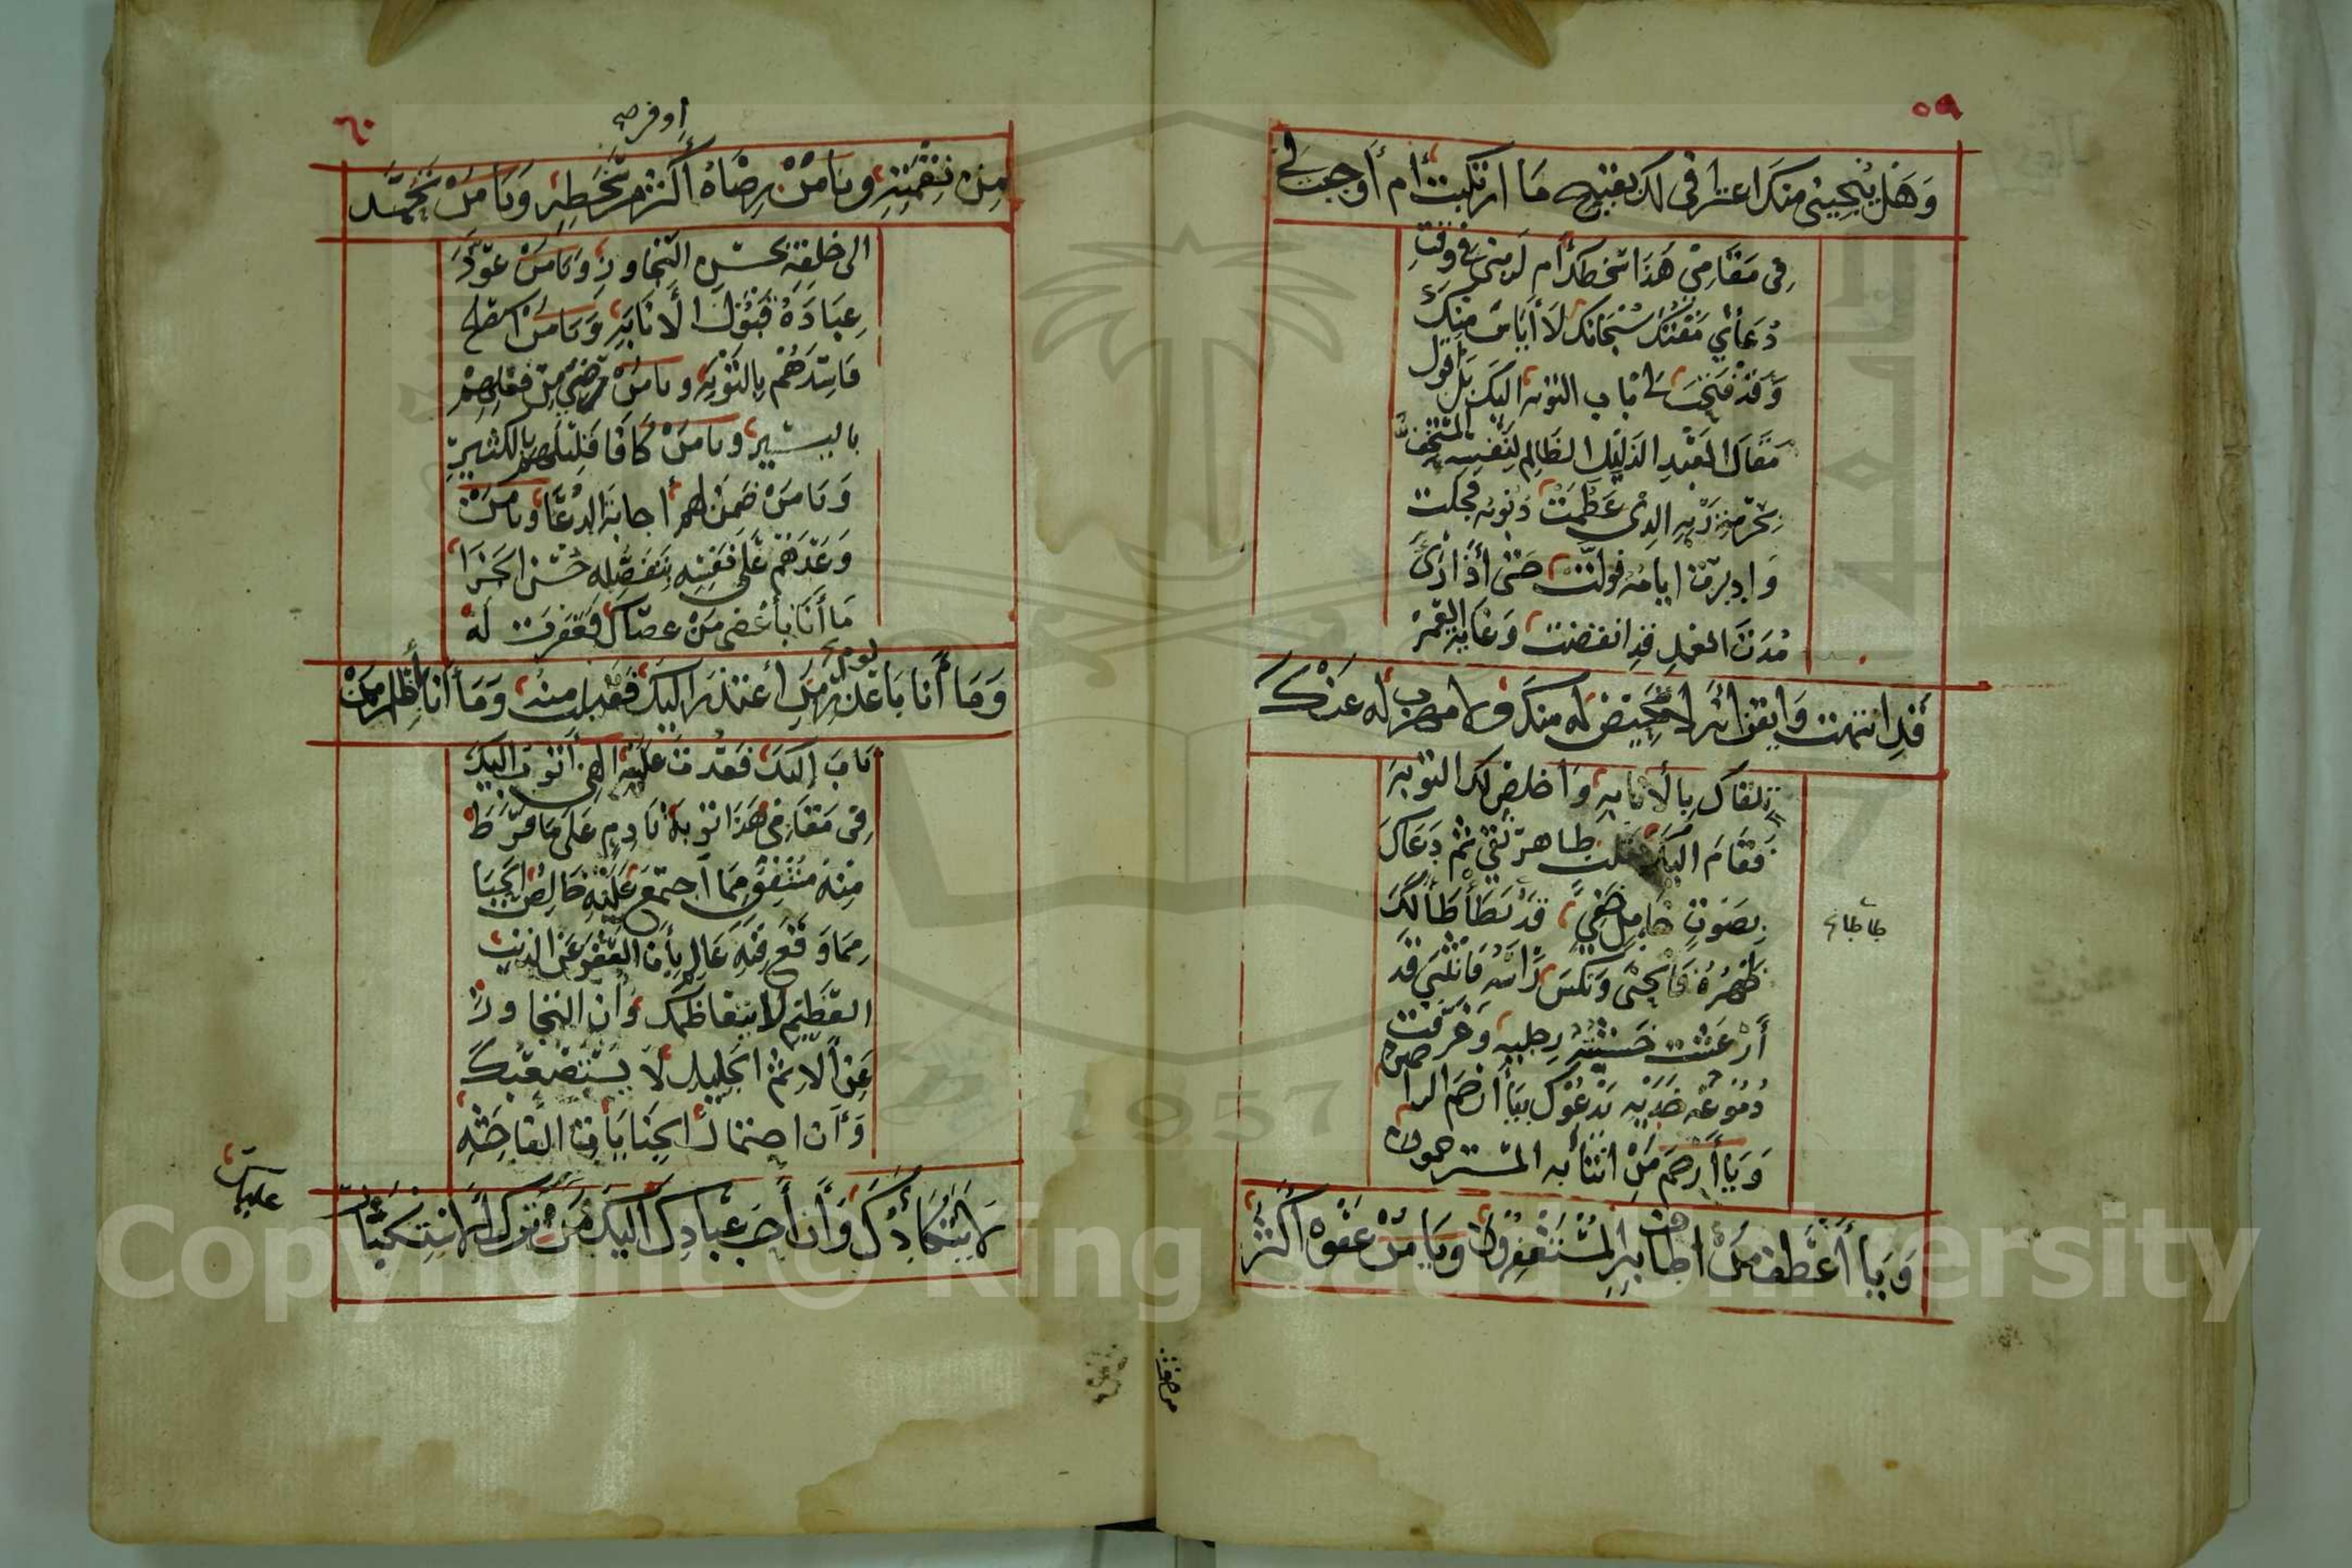 ٥٩
وَهَلْ يُنْجِينِي مِنْكَ اعْتِرَافِي لَكَ بِقَبِيحِ مَا ارْتَكَبْتُ أَمْ أَوْجَبْتَ لِي
فِي مَقَامِي هَذَا سَخَطَكَ أَمْ لَزِمَنِي فِي وَقْتِ
دُعَائِي مَقْتُكَ سُبْحَانَكَ لَا أَيْأَسُ مِنْكَ
وَقَدْ فَتَحْتَ لِي بَابَ التَّوْبَةِ إِلَيْكَ بَلْ أَقُولُ
مَقَالَ الْعَبْدِ الذَّلِيلِ الظَّالِمِ لِنَفْسِهِ الْمُسْتَخِفِّ
بِحُرْمَةِ رَبِّهِ الَّذِي عَظُمَتْ ذُنُوبُهُ فَجَلَّتْ
وَادْبَرَتْ أَيَّامُهُ فَوَلَّتْ حَتَّى إِذَا رَأَى
مُدَّةَ الْعَمَلِ قَدِ انْقَضَتْ وَغَايَةَ الْعُمُرِ
قَدِ انْتَهَتْ وَأَيْقَنَ أَنَّهُ لَا مَحِيصَ لَهُ مِنْكَ وَلَا مَهْرَبَ لَهُ عَنْكَ
تَلَقَّاكَ بِالْإِنَابَةِ وَأَخْلَصَ لَكَ التَّوْبَةَ
فَقَامَ إِلَيْكَ بِقَلْبٍ طَاهِرٍ نَقِيٍّ ثُمَّ دَعَاكَ
بِصَوْتٍ حَائِلٍ خَفِيٍّ قَدْ تَطَأْطَأَ لَكَ
طأطأ
ظَهْرُهُ فَانْحَنَى وَنَكَسَ رَأْسَهُ فَانْثَنَى قَدْ
أَرْعَشَتْ خَشْيَتُهُ رِجْلَيْهِ وَغَرَّقَتْ
دُمُوعُهُ خَدَّيْهِ يَدْعُوكَ بِيَا أَرْحَمَ الراحمين
وَيَا أَرْحَمَ مَنِ انْتَابَهُ الْمُسْتَرْحِمُونَ
وَيَا أَعْطَفَ مَنْ أَطَافَ بِهِ الْمُسْتَغْفِرُونَ وَيَا مَنْ عَفْوُهُ أَكْثَرُ
مِنْ نَقِمَتِهِ
٦٠
أوفر صح
مِنْ نَقِمَتِهِ وَيَا مَنْ رِضَاهُ أَكْثَرُ مِنْ سَخَطِهِ وَيَا مَنْ تَحَمَّدَ
إِلَى خَلْقِهِ بِحُسْنِ التَّجَاوُزِ وَيَا مَنْ عَوَّدَ
عِبَادَهُ قَبُولَ الْإِنَابَةِ وَيَا مَنِ اسْتَصْلَحَ
فَاسِدَهُمْ بِالتَّوْبَةِ وَيَا مَنْ رَضِيَ مِنْ فِعْلِهِمْ
بِالْيَسِيرِ وَيَا مَنْ كَافَا قَلِيلَهُمْ بِالْكَثِيرِ
وَيَا مَنْ ضَمِنَ لَهُمْ إِجَابَةَ الدُّعَاءِ وَيَا مَنْ
وَعَدَهُمْ عَلَى نَفْسِهِ بِتَفَضُّلِهِ حُسْنَ الْجَزَا
مَا أَنَا بِأَعْصَى مَنْ عَصَاكَ فَغَفَرْتَ لَهُ
وَمَا أَنَا بِأَلْوَمِ مَنِ اعْتَذَرَ إِلَيْكَ فَقَبِلْتَ مِنْهُ وَمَا أَنَا بِأَظْلَمِ مَنْ
تَابَ إِلَيْكَ فَعُدْتَ عَلَيْهِ إِلَهِي أَتُوبُ إِلَيْكَ
فِي مَقَامِي هَذَا تَوْبَةَ نَادِمٍ عَلَى مَا فَرَطَ
مِنْهُ مُشْفِقٍ مِمَّا اجْتَمَعَ عَلَيْهِ خَالِصِ الْحَيَا
مِمَّا وَقَعَ فِيهِ عَالِمٍ بِأَنَّ الْعَفْوَ عَنِ الذَّنْبِ
الْعَظِيمِ لَا يَتَعَاظَمُكَ وَأَنَّ التَّجَاوُزَ
عَنِ الْإِثْمِ الْجَلِيلِ لَا يَسْتَصْعِبُكَ
وَأَنَّ احْتِمَالَ الْجِنَايَاتِ الْفَاحِشَةِ
لَا يَتَكَأَّدُكَ وَأَنَّ أَحَبَّ عِبَادِكَ إِلَيْكَ مَنْ تَرَكَ الْاسْتِكْبَارَ
عليك
Copyright © King Saud University
1957